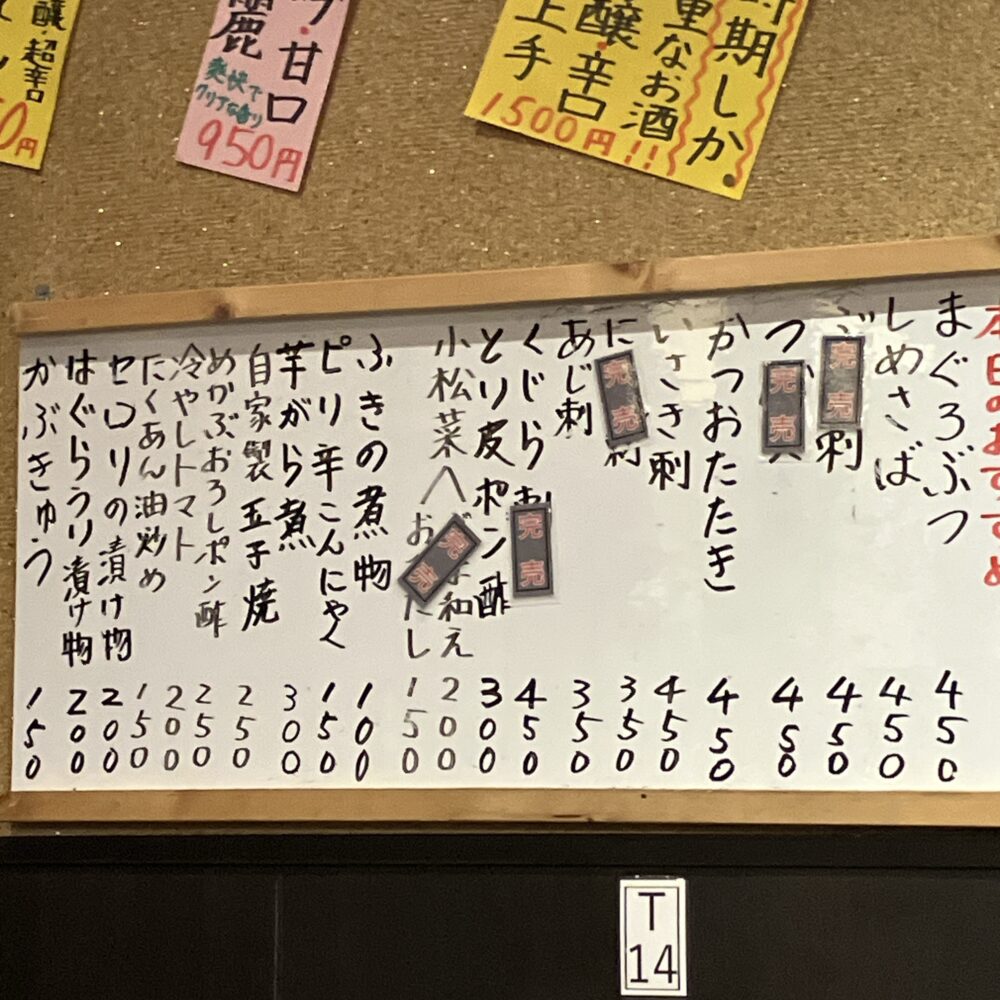 期しか.
重なお酒!!
醸・辛口
上手
1500円
・甘口
麗
爽快で
クリアな香り
950円
醸・超辛口
0円
本日のおすすめ
まぐろぶつ 450
しめさば 450
ぶ 完売 刺 450
つぶ 完売 450
かつおたたき 450
いさき刺 450
に 完売 刺 350
あじ刺 350
くじら刺 完売 450
とり皮ポン酢 300
小松菜 和え 200
お 完売 たし 150
ふきの煮物 100
ピリ辛こんにゃく 150
芋がら煮 300
自家製玉子焼 250
めかぶおろしポン酢 250
冷やしトマト 200
にくあん油炒め 150
セロリの漬け物 200
はぐらうり漬け物 200
かぶきゅう 150
T
14